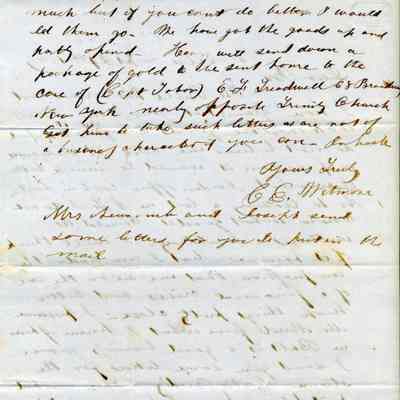 much but if you cant do better I would
let them go. We have got the goods up and
partly opened. Have will send down a
package of gold to be sent home to the
care of (Capt Tabor) E. F. Treadwell 68 Broadway
New York nearly opposite Trinity Church
Get him to take such letters as are not of
a business character if you can. In haste
Yours Truly
C. E. Wetmore
Mrs and Joseph send
some letters for you to put in the
mail